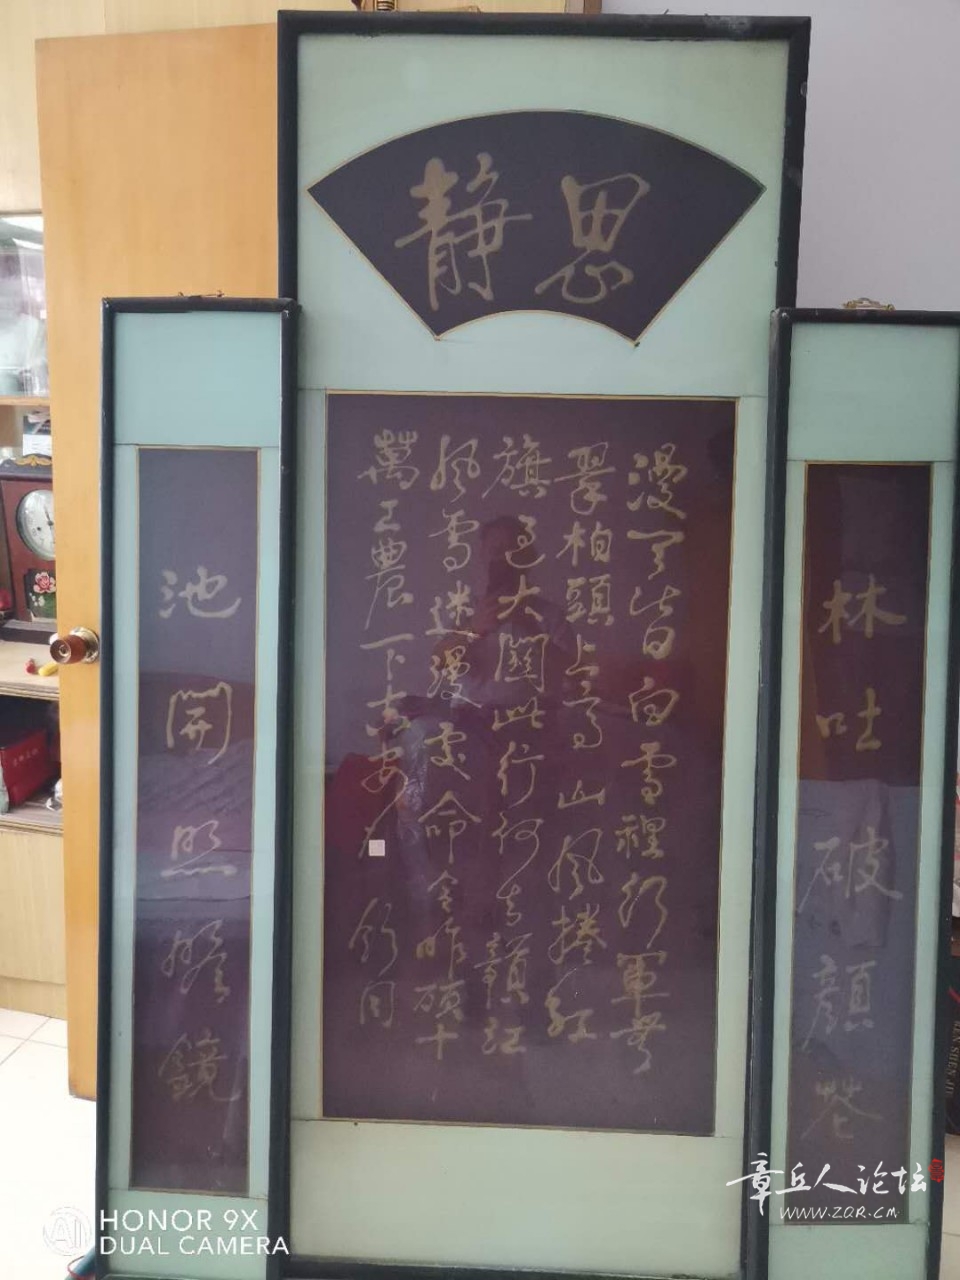 静思
林吐破顏花
漫天皆白雪裡行軍無
翠柏頭上高山風捲紅
旗過大關此行何去贛江
風雪迷漫處命令昨頒十
萬工農下吉安
池開照膽鏡
章丘人论坛
WWW.ZQR.CM
HONOR 9X
DUAL CAMERA
AI